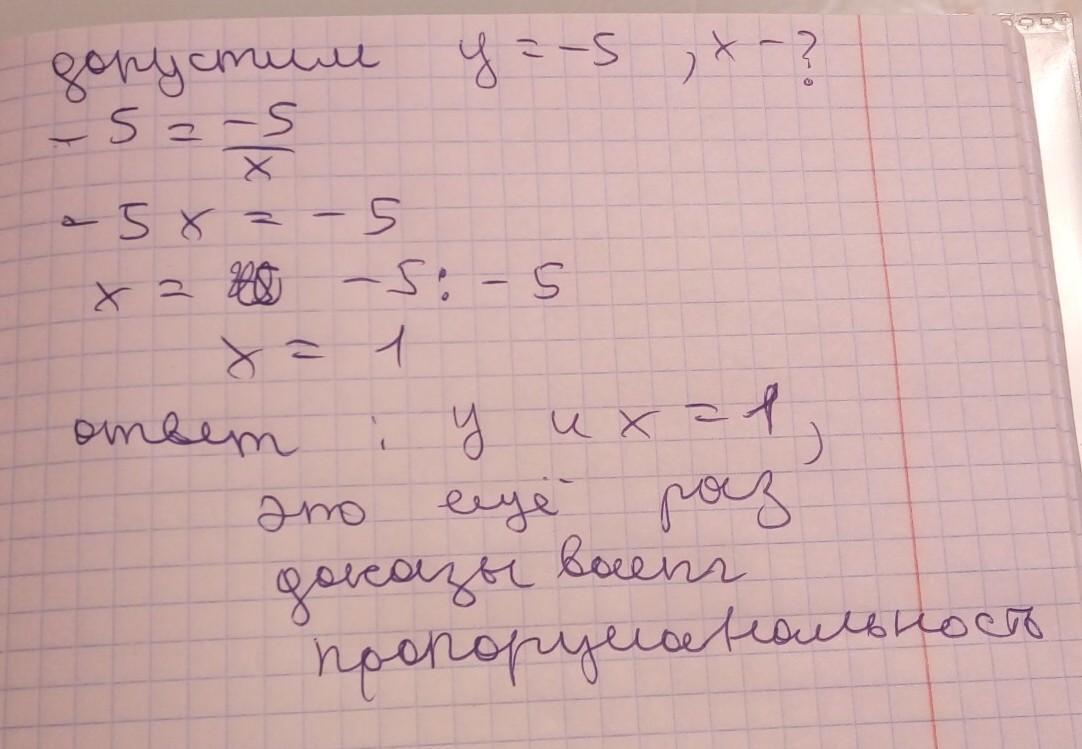 допустим y = -5 , x - ?
-5 = -5/x
-5x = -5
x = -5 : -5
x = 1
ответ : y и x = 1,
это ещё раз
доказывает
пропорциональность